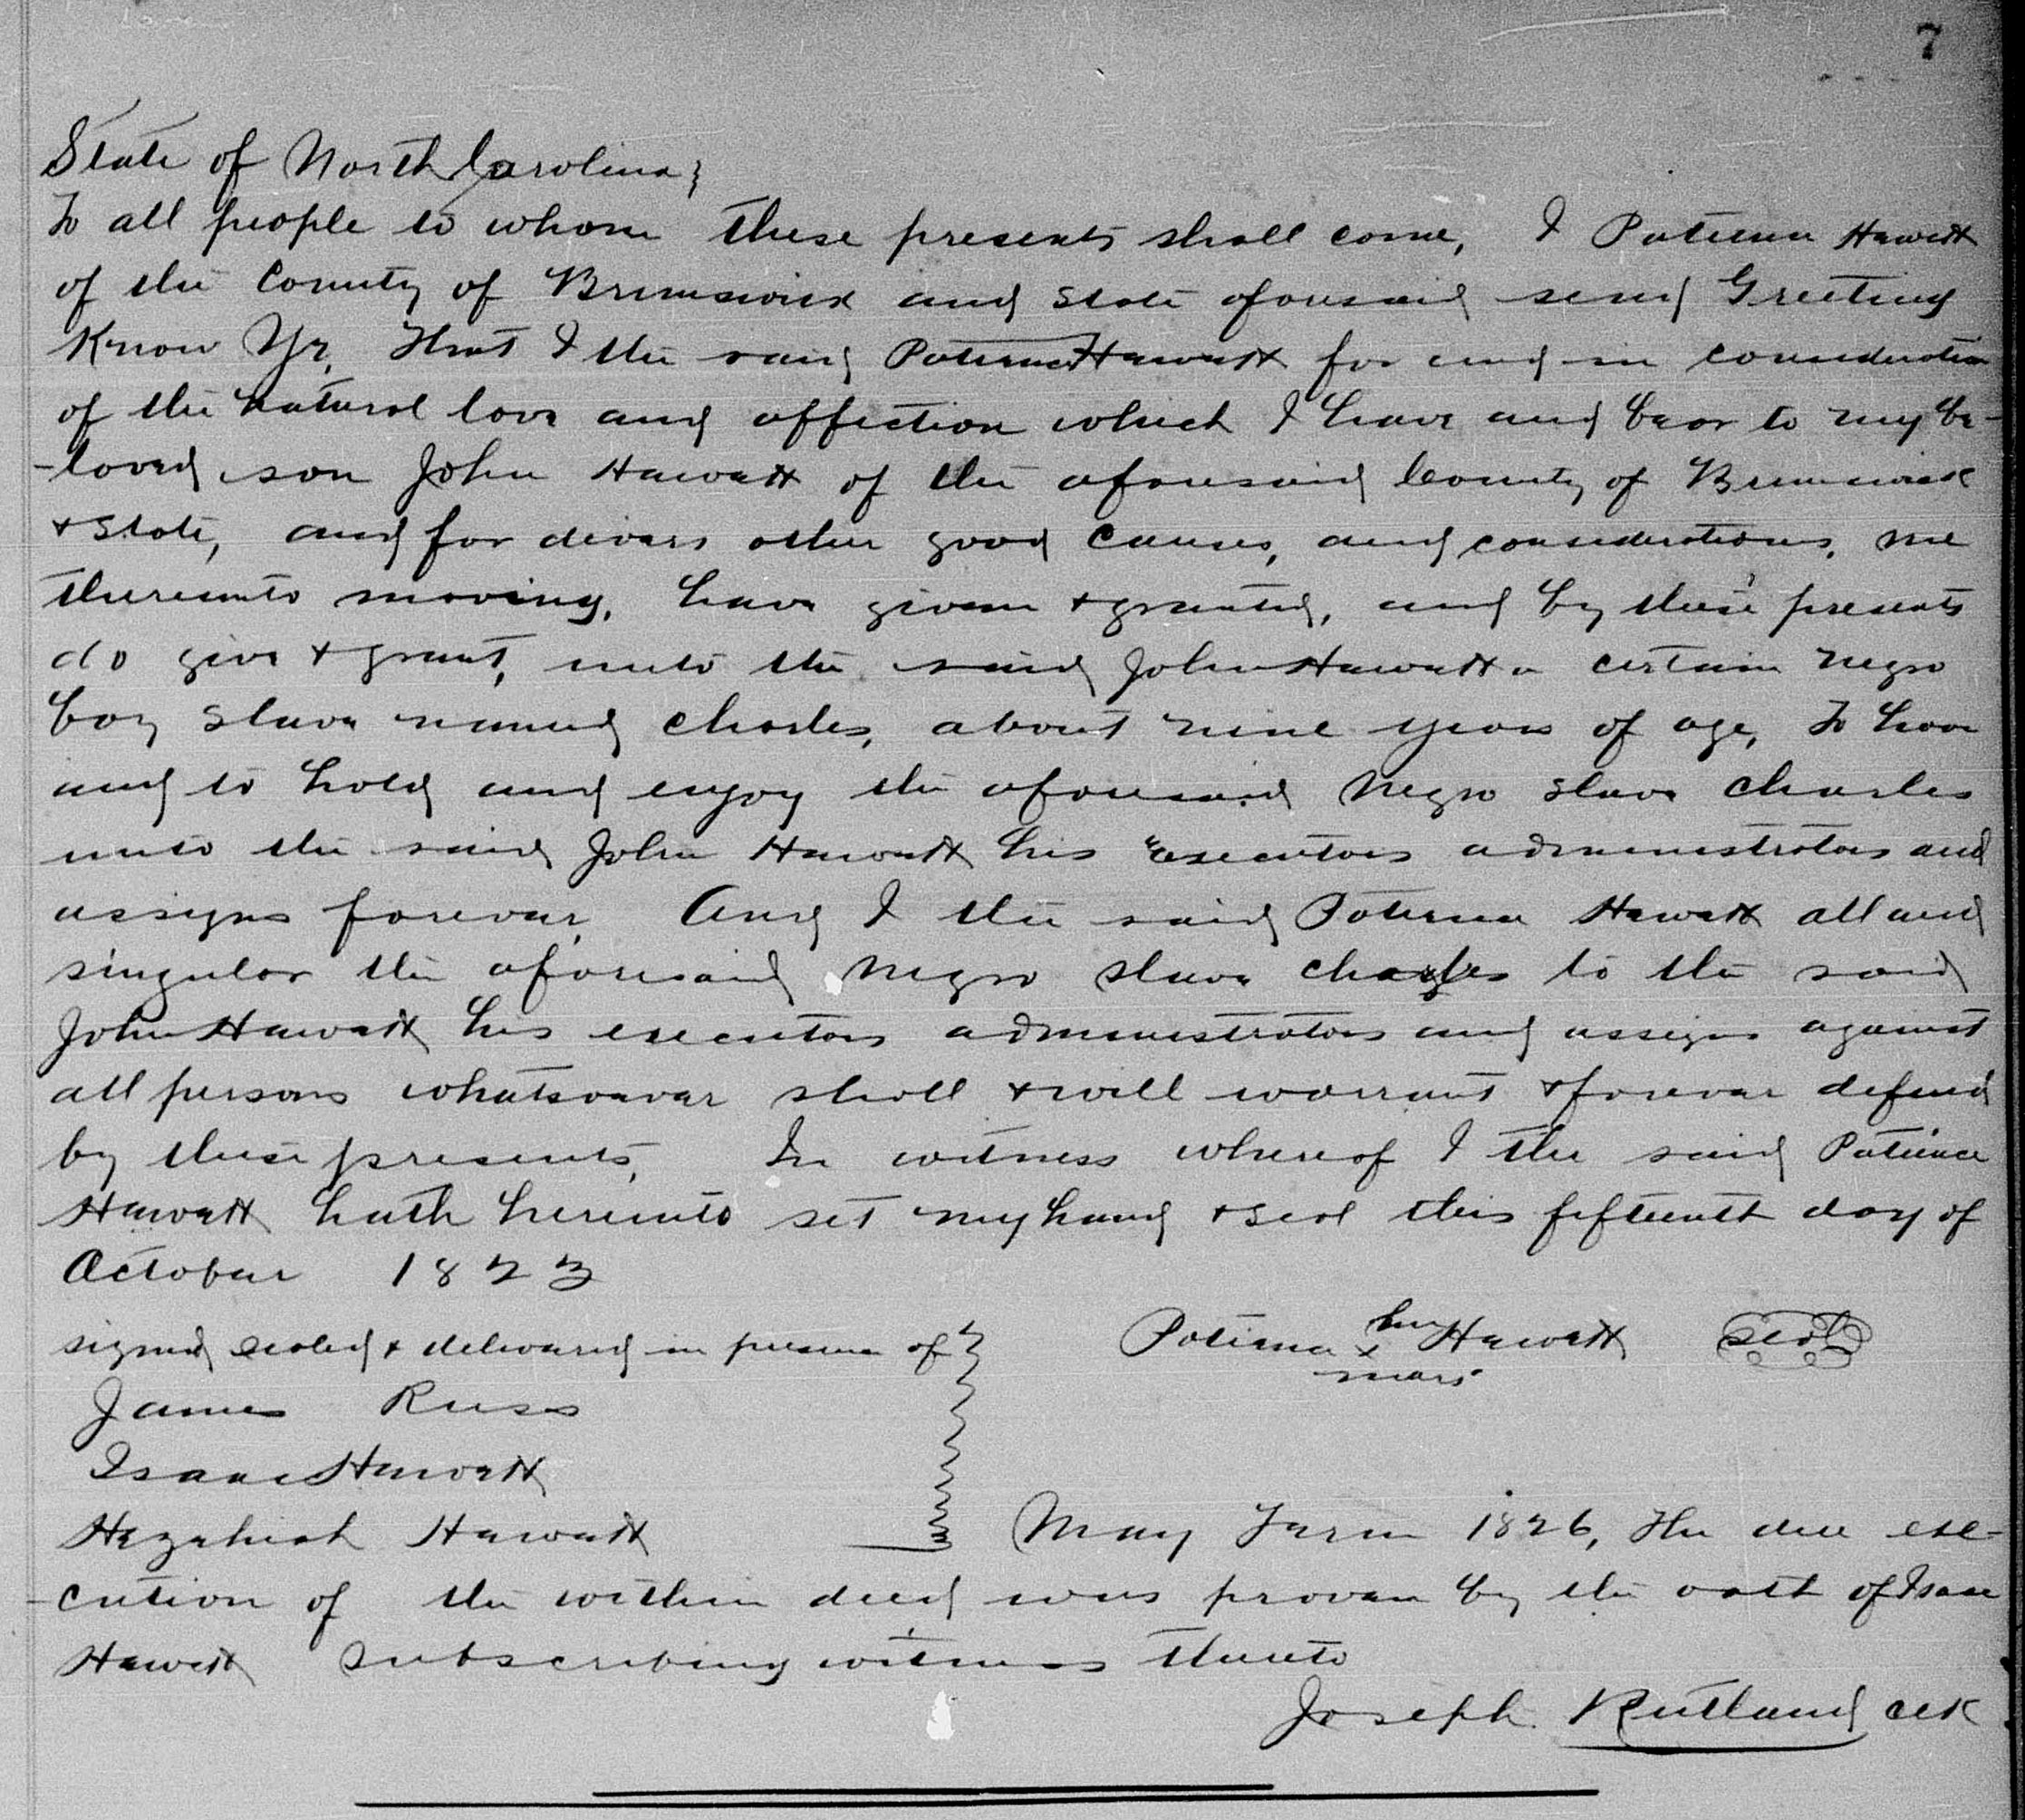 7
State of North Carolina;
To all people to whom these presents shall come, I Patience Hewett
of the County of Brunswick and State aforesaid send Greeting
Know Ye, That I the said Patience Hewett for and in consideration
of the natural love and affection which I have and bear to my be-
-loved son John Hewett of the aforesaid County of Brunswick
& State, and for divers other good causes, and considerations, me
thereunto moving, have given & granted, and by these presents
do give & grant, unto the said John Hewett a certain negro
boy slave named Charles, about nine years of age, To have
and to hold and enjoy the aforesaid Negro slave Charles
unto the said John Hewett his executors administrators and
assigns forever, And I the said Patience Hewett all and
singular the aforesaid Negro slave Charles to the said
John Hewett his executors administrators and assigns against
all persons whatsoever shall & will warrant & forever defend
by these presents, In witness whereof I the said Patience
Hewett hath hereunto set my hand & seal this fifteenth day of
October 1823
signed sealed & delivered in presence of Patience her x mark Hewett seal
James Russ
Isaac Hewett
Hezekiah Hewett May Term 1826, The due exe-
-cution of the within deed was proven by the oath of Isaac
Hewett subscribing witness thereto
Joseph Rutland Clk